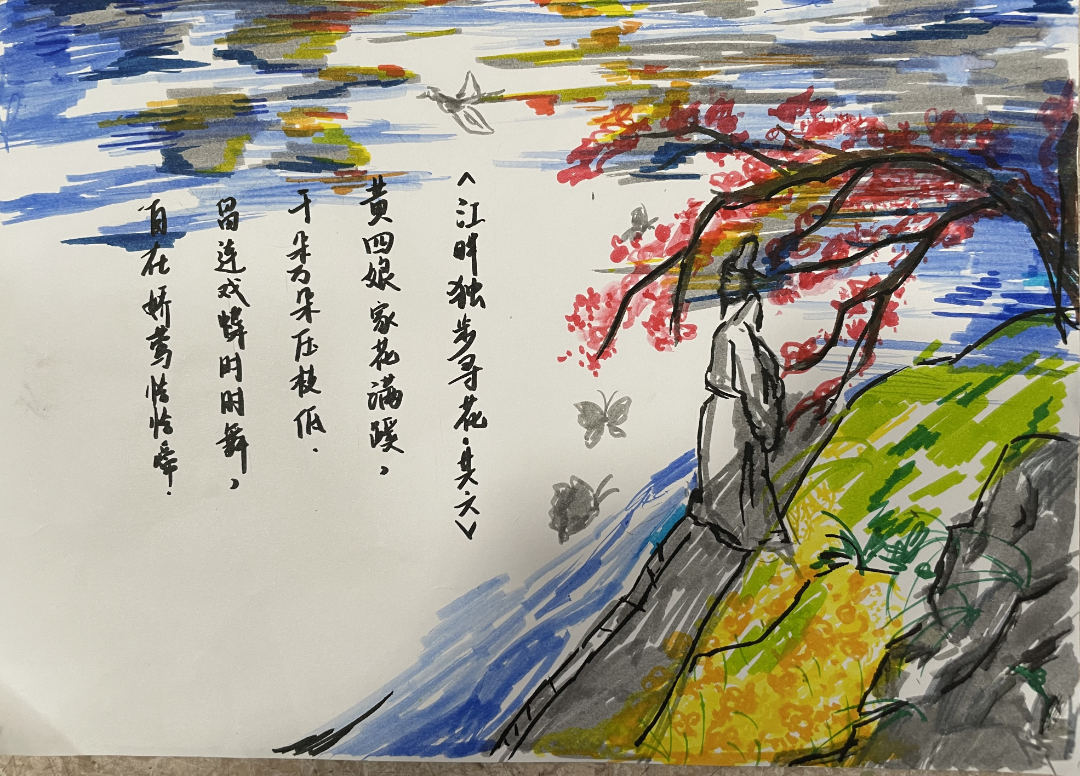 <江畔独步寻花·其六>
黄四娘家花满蹊，
千朵万朵压枝低．
留连戏蝶时时舞，
自在娇莺恰恰啼．